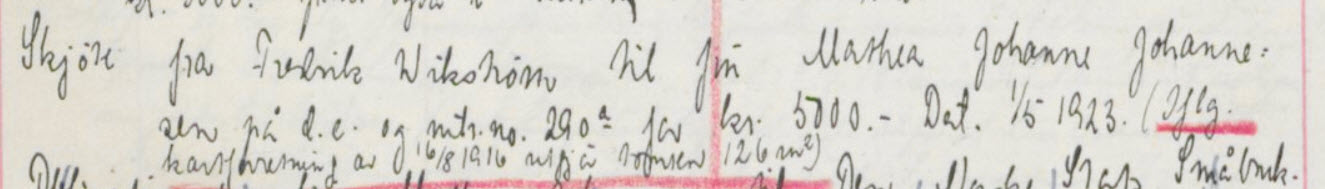 Skjöte fra Fredrik Wikström til frü Mathea Johanne Johanne=
sen på d.e. og mtr. no. 290ª for kr. 5000.- Dat. 1/5 1923. (Iflg.
kartforretning av 16/8 1916 utgjør tomten 126 m²)
til Den Norske Stats Småbruk-